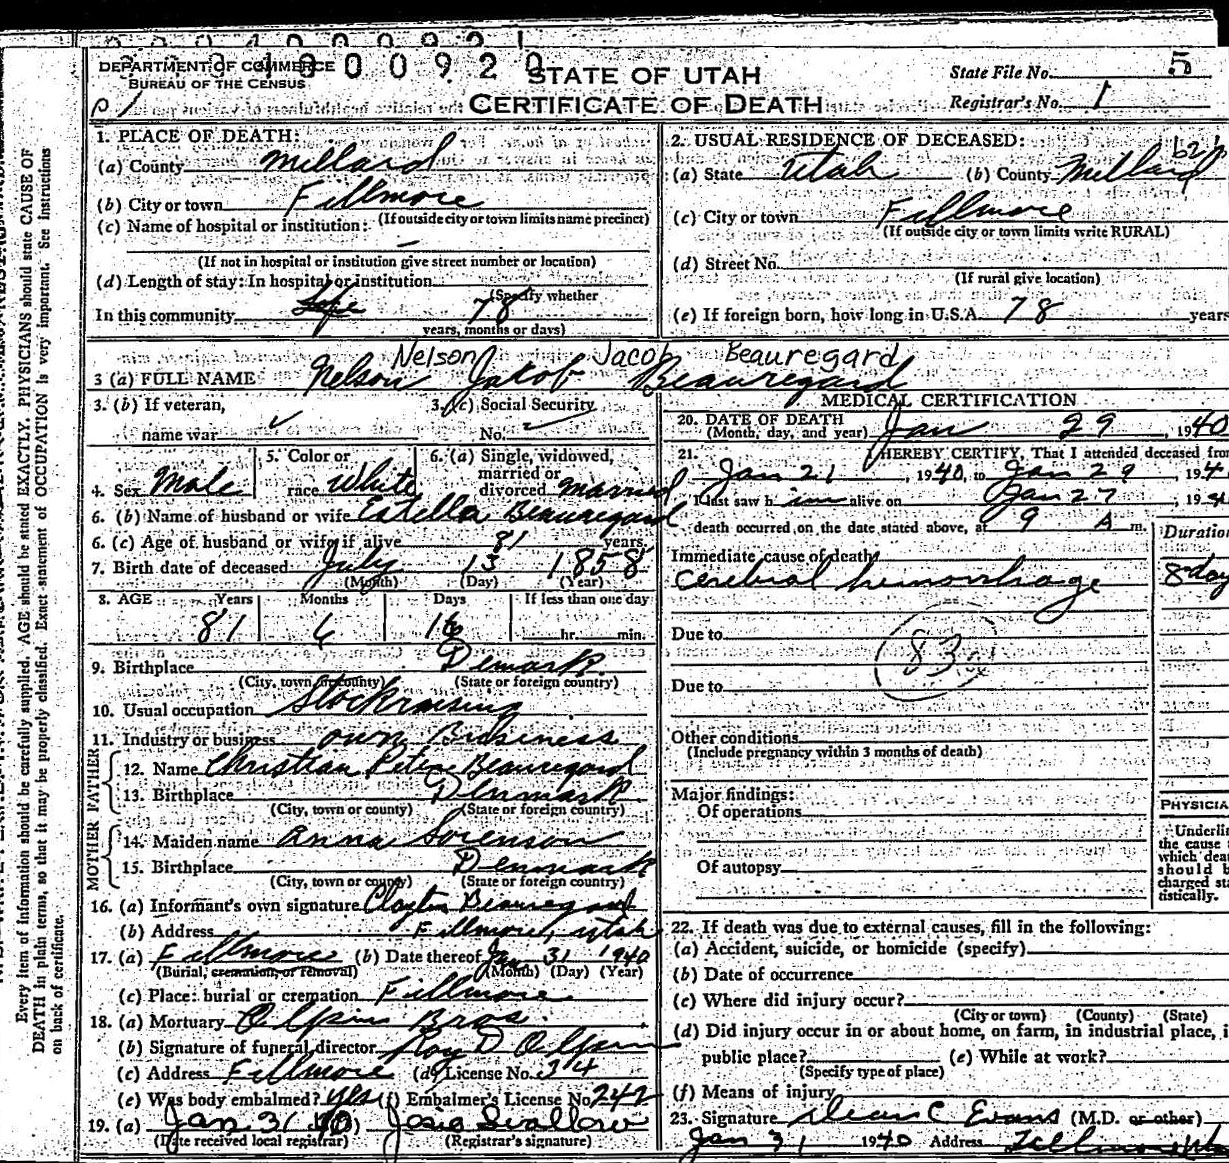 DEPARTMENT OF COMMERCE
BUREAU OF THE CENSUS
00920
STATE OF UTAH
CERTIFICATE OF DEATH
State File No. 5
Registrar's No. 1
Every item of information should be carefully supplied. AGE should be stated EXACTLY. PHYSICIANS should state CAUSE OF
DEATH in plain terms, so that it may be properly classified. Exact statement of OCCUPATION is very important. See instructions
on back of certificate.
1. PLACE OF DEATH:
(a) County Millard
(b) City or town Fillmore
(If outside city or town limits name precinct)
(c) Name of hospital or institution: -
(If not in hospital or institution give street number or location)
(d) Length of stay: In hospital or institution
(Specify whether
In this community 78
years, months or days)
2. USUAL RESIDENCE OF DECEASED:
(a) State Utah (b) County Millard
(c) City or town Fillmore
(If outside city or town limits write RURAL)
(d) Street No.
(If rural give location)
(e) If foreign born, how long in U.S.A. 78 years
Nelson Jacob Beauregard
3 (a) FULL NAME Nelson Jakob Beauregard
3. (b) If veteran,
name war
3. (c) Social Security
No.
4. Sex Male
5. Color or
race White
6. (a) Single, widowed,
married or
divorced married
6. (b) Name of husband or wife Estella Beauregard
6. (c) Age of husband or wife if alive 81 years
7. Birth date of deceased July 13 1858
(Month) (Day) (Year)
8. AGE Years Months Days If less than one day
81 6 16 hr. min.
9. Birthplace Demark
(City, town or county) (State or foreign country)
10. Usual occupation Stockraising
11. Industry or business own Business
FATHER
12. Name Christian Peter Beauregard
13. Birthplace Denmark
(City, town or county) (State or foreign country)
MOTHER
14. Maiden name Anna Sorenson
15. Birthplace Denmark
(City, town or county) (State or foreign country)
16. (a) Informant's own signature Clayton Beauregard
(b) Address Fillmore, Utah
17. (a) Fillmore (b) Date thereof Jan 31 1940
(Burial, cremation, or removal) (Month) (Day) (Year)
(c) Place: burial or cremation Fillmore
18. (a) Mortuary Olpin Bros.
(b) Signature of funeral director Roy D Olpin
(c) Address Fillmore (d) License No. 314
(e) Was body embalmed? yes (f) Embalmer's License No. 242
19. (a) Jan 31 40 Josie Swallow
(Date received local registrar) (Registrar's signature)
MEDICAL CERTIFICATION
20. DATE OF DEATH
(Month, day, and year) Jan 29, 1940
21. I HEREBY CERTIFY, That I attended deceased from
Jan 21, 1940, to Jan 29, 194
I last saw him alive on Jan 27, 194
death occurred on the date stated above, at 9 A m.
Duration
Immediate cause of death
Cerebral hemorrhage 8 day
Due to
83a
Due to
Other conditions
(Include pregnancy within 3 months of death)
Major findings:
Of operations
Of autopsy
PHYSICIA
Underli
the cause
which dea
should b
charged sta
tistically.
22. If death was due to external causes, fill in the following:
(a) Accident, suicide, or homicide (specify)
(b) Date of occurrence
(c) Where did injury occur?
(City or town) (County) (State)
(d) Did injury occur in or about home, on farm, in industrial place, i
public place? (e) While at work?
(Specify type of place)
(f) Means of injury
23. Signature Dean C Evans (M.D. or other)
Jan 31 1940 Address Fillmore